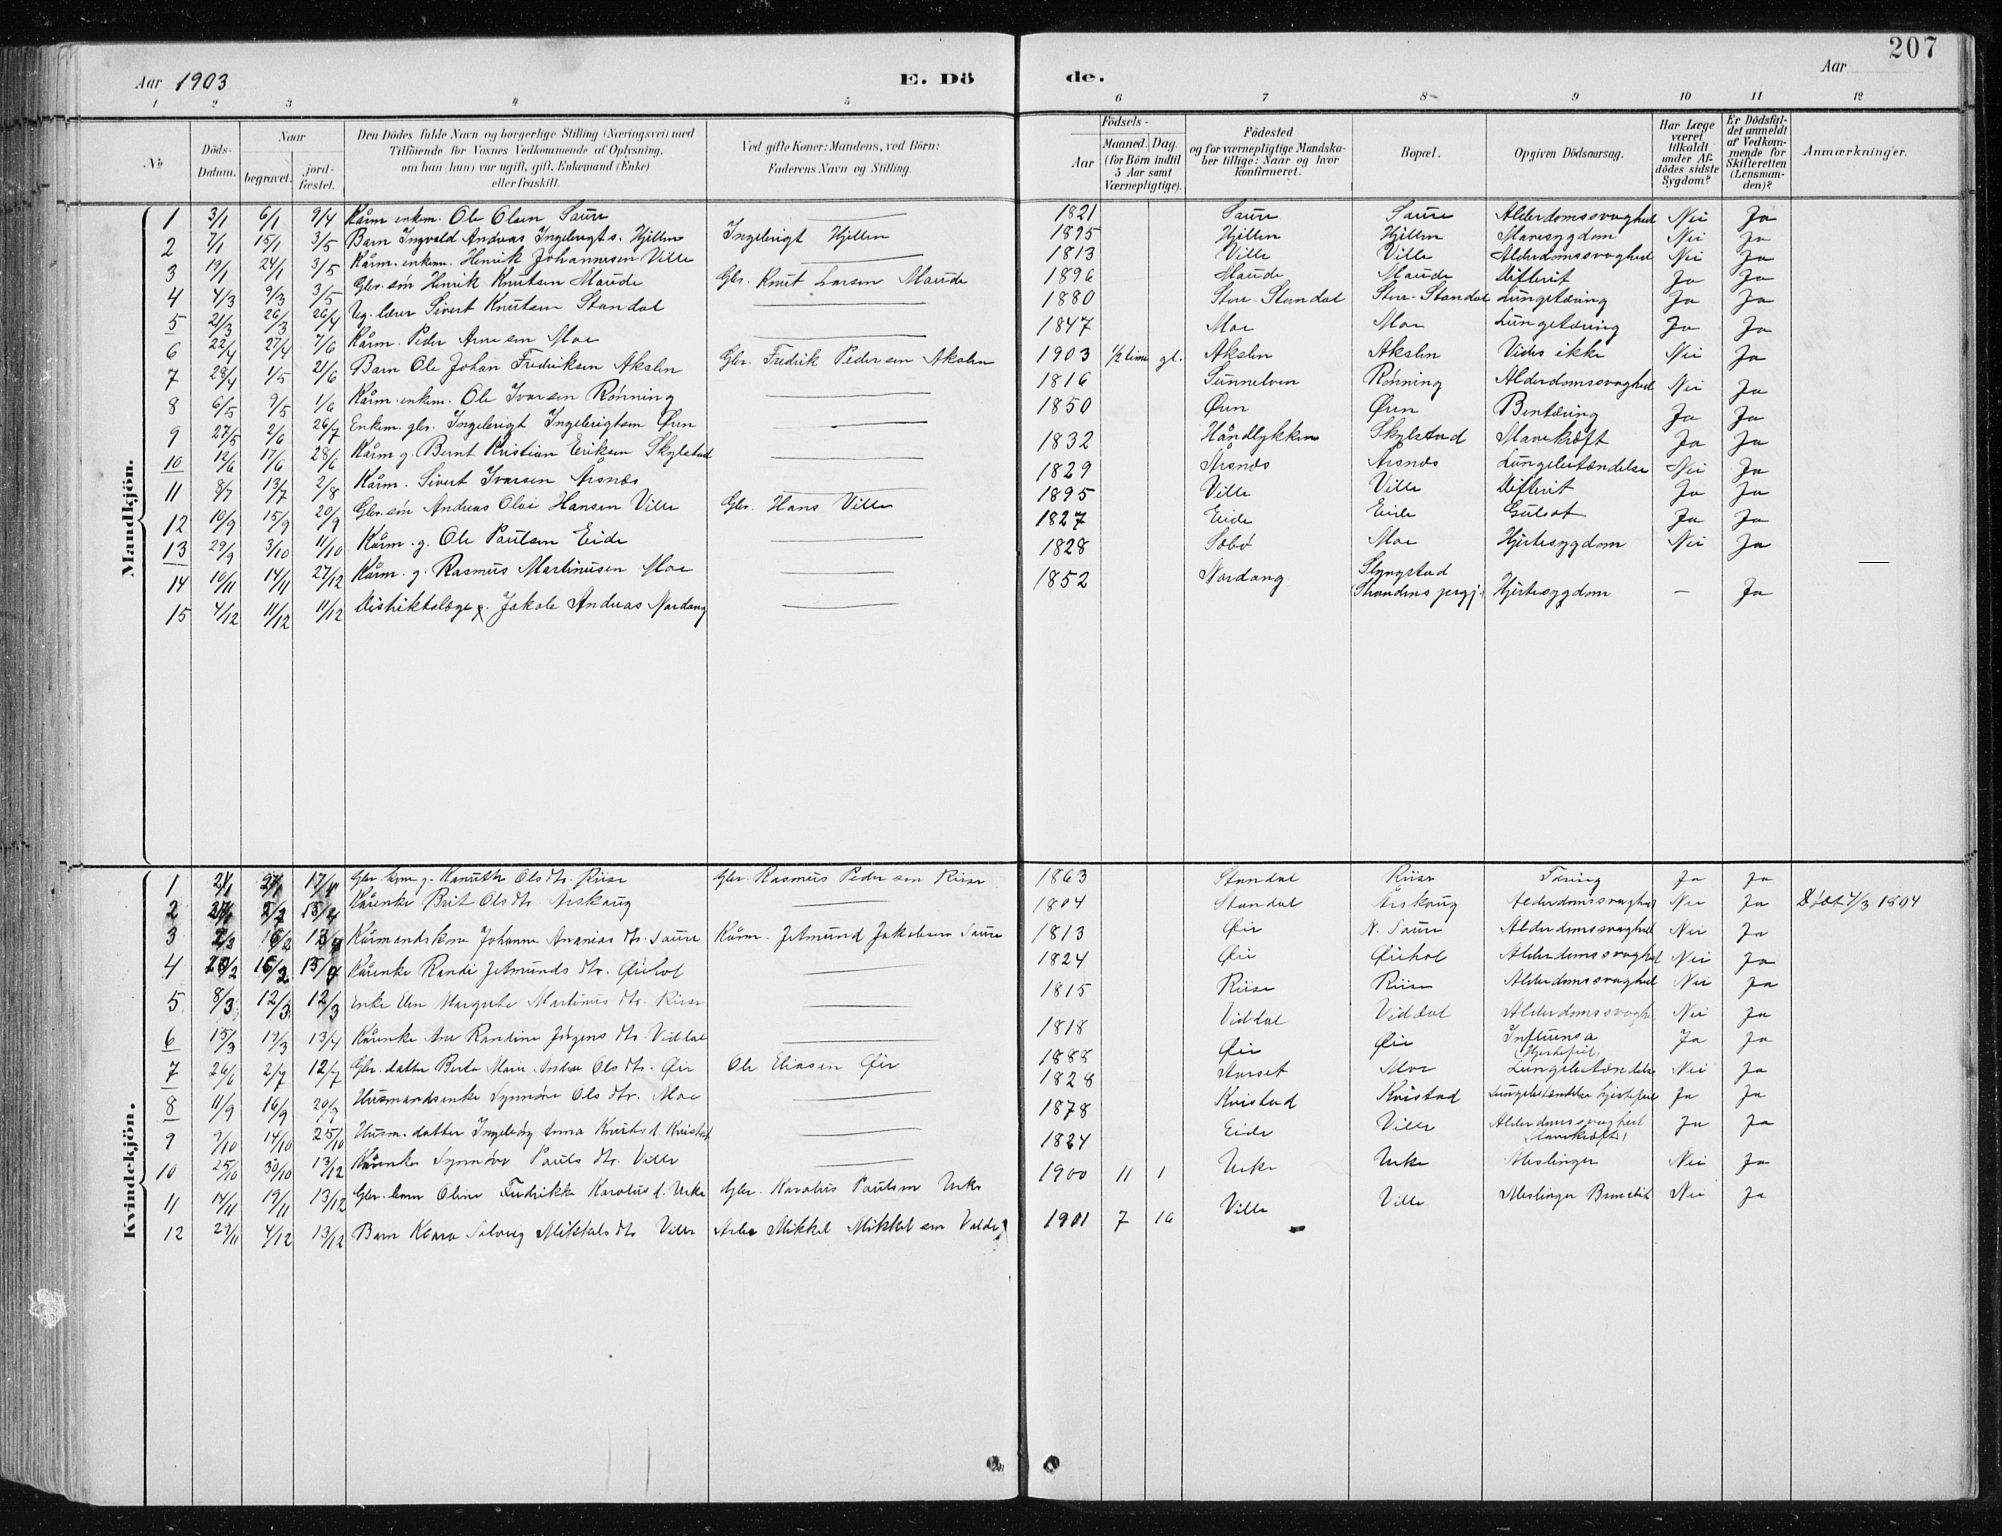 207
Aar 1903
E. Dö
de.
Aar
1 2 3 4 5 6 7 8 9 10 11 12
No
Döds-Datum.
Naar
begravet.
jordfæstet.
Den Dödes fulde Navn og borgerlige Stilling (Næringsvei) med
Tilföiende for Voxnes Vedkommende af Oplysning,
om han (hun) var ugift, gift, Enkemand (Enke)
eller fraskilt.
Ved gifte Koner: Mandens, ved Börn:
Faderens Navn og Stilling.
Födsels-
Aar
Maaned. Dag.
(for Börn indtil
5 Aar samt
Værnepligtige).
Födested
og for værnepligtige Mandska-
ber tillige: Naar og hvor
konfirmeret.
Bopæl.
Opgiven Dödsaarsag.
Har Læge
været
tilkaldt
under Af-
dödes sidste
Sygdom?
Er Dödsfal-
det anmeldt
af Vedkom-
mende for
Skifteretten
(Lensman-
den)?
Anmærkninger.
Mandkjön.
1 3/1 6/1 9/4 Kårm. enkem. Ole Olsen Saure 1821 Saure Saure Alderdomssvaghed Nei Ja
2 7/1 15/1 3/5 Barn Ingvald Andreas Ingebrigts. Hjellen Ingebrigt Hjellen 1895 Hjellen Hjellen Mavesygdom Nei Ja
3 19/1 24/1 3/5 Kårm. enkem. Henrik Johannesen Ville 1813 Ville Ville Alderdomssvaghed Nei Ja
4 4/3 9/3 3/5 Gbr. søn Henrik Knutsen Maude Gbr. Knut Larsen Maude 1896 Maude Maude Difterit Ja Ja
5 21/3 26/3 26/4 Ug. lærer Sivert Knutsen Standal 1880 Store-Standal Store-Standal Lungetæring Ja Ja
6 22/4 27/4 7/6 Kårm. Peder Arnesen Moe 1847 Moe Moe Lungetæring Ja Ja
7 28/4 1/5 21/6 Barn Ole Johan Fredriksen Akslen Gbr. Fredrik Pedersen Akslen 1903 1/2 time gl. Akslen Akslen Vides ikke Nei Ja
8 6/5 9/5 1/6 Kårm. enkem. Ole Ivarsen Rønning 1816 Sunnelven Rønning Alderdomssvaghed Nei Ja
9 27/5 2/6 26/7 Enkem. gbr. Ingebrigt Ingebrigtsen Øren 1850 Øren Øren Bentæring Ja Ja
10 12/6 17/6 28/6 Kårm g. Bernt Kristian Eriksen Skylstad 1832 Håndlykken Skylstad Mavekræft Ja Ja
11 8/7 13/7 2/8 Kårm. Sivert Ivarsen Årsnes 1829 Årsnes Årsnes Lungebetændelse Nei Ja
12 10/9 15/9 20/9 Gbr. søn Andreas Olai Hansen Ville Gbr. Hans Ville 1895 Ville Ville Difterit Ja Ja
13 29/9 3/10 11/10 Kårm. g. Ole Paulsen Eide 1827 Eide Eide Gulsot Ja Ja
14 10/11 14/11 27/12 Kårm. g. Rasmus Martinusen Moe 1828 Sæbø Moe Hjertesygdom Nei Ja
15 4/12 11/12 11/12 Distriktslæge g. Jakob Andreas Nordang 1852 Nordang Slyngstad Strandens prgj. Hjertesygdom — Ja
Kvindekjön.
1 17/4 Gbr. kone g. Olsdtr. Riise Gbr. Rasmus Pedersen Riise 1863 Standal Riise Tæring Ja Ja
2 Kårenke Brit Olsdtr. Årskoug 1804 Standal Årskoug Alderdomssvaghed Nei Ja Døbt 4/3 1804
3 Kårmandskone Johanne Ananiasdtr. Saure Kårm. Jetmund Jakobsen Saure 1813 Øie N. Saure Alderdomssvaghed Nei Ja
4 Kårenke Randi Jetmundsdtr. Øiehol 1824 Øie Øiehol Alderdomssvaghed Nei Ja
5 8/3 12/3 12/3 Enke Margrete Martinusdtr. Riise 1815 Riise Riise Alderdomssvaghed Nei Ja
6 15/3 19/3 13/4 Kårenke Ane Randine Jørgensdtr. Viddal 1818 Viddal Viddal Alderdomssvaghed Nei Ja
7 26/6 2/7 12/7 Gbr. datter Berte Marie Olsdtr. Øie Ole Eliasen Øie 1888 Øie Øie Influensa (Hjertefeil) Ja Ja
8 11/9 16/9 20/9 Husmandsenke Synnøve Olsdtr. Moe 1828 Aarset Moe Lungebetændelse Nei Ja
9 9/10 14/10 25/10 Husm. datter Ingeborg Anna Knutsd. Kvistad 1878 Kvistad Kvistad Lungebetændelse Hjertefeil Ja Ja
10 25/10 30/10 13/12 Kårenke Synnøve Paulsdtr. Ville 1824 Eide Ville Alderdomssvaghed (Mavekræft) Ja Ja
11 14/11 19/11 13/12 Gbr. barn Oline Fredrikke Karolusd. Urke Gbr. Karolus Paulsen Urke 1900 11 1 Urke Urke Meslinger Nei Ja
12 29/11 4/12 13/12 Barn Klara Solveig Mikkelsdtr. Ville Arb. Mikkel Mikkelsen 1901 7 16 Ville Ville Meslinger Nei Ja